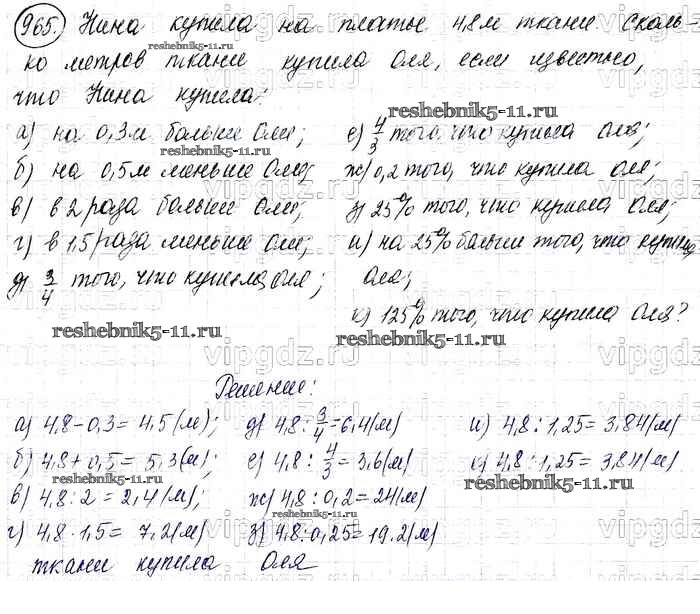 965. Нина купила на платье 4,8 м ткани. Сколь-
ко метров ткани купила Оля, если известно,
что Нина купила:
а) на 0,3 м больше Оли;
б) на 0,5 м меньше Оли;
в) в 2 раза больше Оли;
г) в 1,5 раза меньше Оли;
д) 3/4 того, что купила Оля;
е) 4/3 того, что купила Оля;
ж) 0,2 того, что купила Оля;
з) 25% того, что купила Оля;
и) на 25% больше того, что купила
Оля;
к) 125% того, что купила Оля?
reshebnik5-11.ru
reshebnik5-11.ru
reshebnik5-11.ru
reshebnik5-11.ru
reshebnik5-11.ru
Решение:
а) 4,8-0,3=4,5(м);
б) 4,8+0,5=5,3(м);
в) 4,8:2=2,4(м);
г) 4,8·1,5=7,2(м)
д) 4,8:3/4=6,4(м)
е) 4,8:4/3=3,6(м)
ж) 4,8:0,2=24(м)
з) 4,8:0,25=19.2(м)
и) 4,8:1,25=3,84(м)
к) 4,8:1,25=3,84(м)
ткани купила Оля
reshebnik5-11.ru
reshebnik5-11.ru
vipgdz.ru
vipgdz.ru
vipgdz.ru